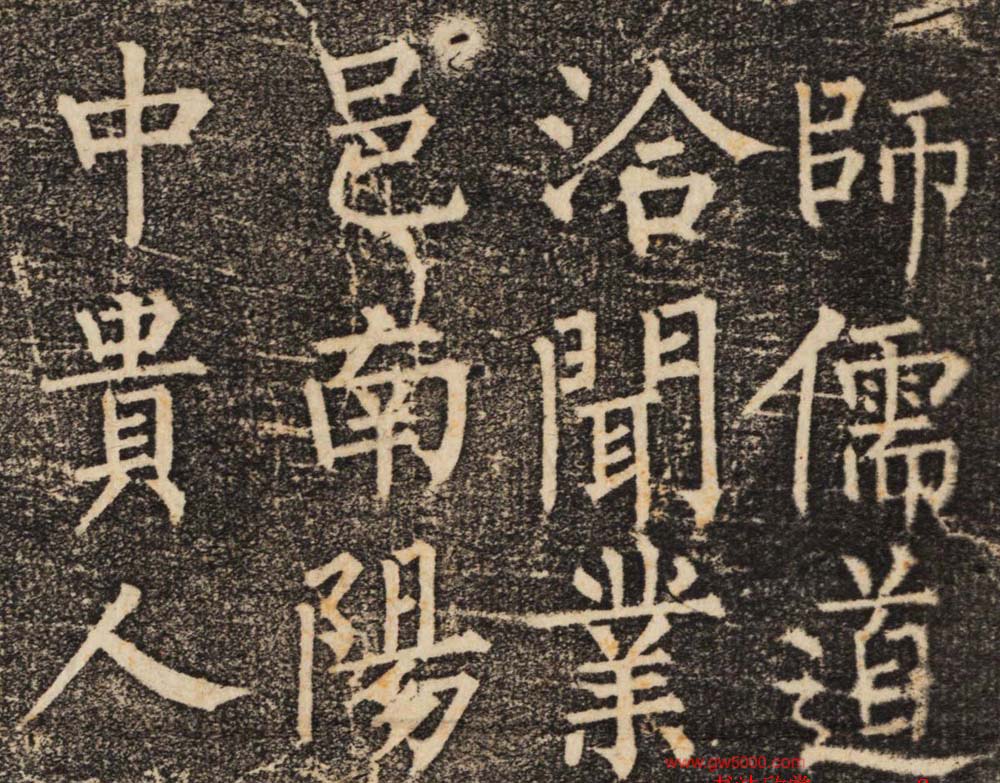 師儒道
洽聞業
邑南陽
中貴人
www.gw5000.com